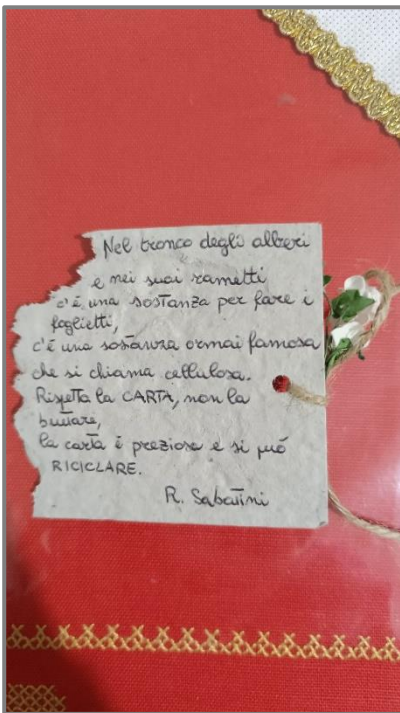 Nel tronco degli alberi
e nei suoi rametti
c'è una sostanza per fare i
foglietti,
c'è una sostanza ormai famosa
che si chiama cellulosa.
Rispetta la CARTA, non la
buttare,
la carta è preziosa e si può
RICICLARE.
R. Sabatini